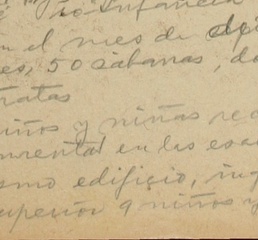 Infancia
el mes de
50 sabanas, do
ratas
niños y niñas re
en las es
smo edificio, in
superior 9 niños y